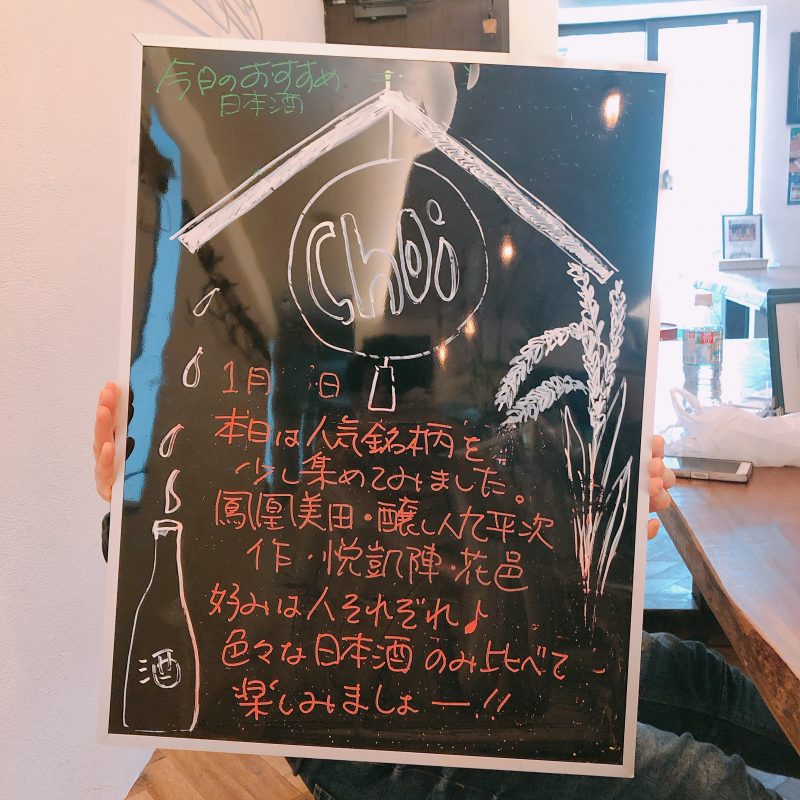 今日のおすすめ
日本酒
Choi
1月 日
本日は人気銘柄を
少し集めてみました。
鳳凰美田・醸し人九平次
作・悦凱陣・花邑
好みは人それぞれ♪
色々な日本酒のみ比べて
楽しみましょー!!
酒